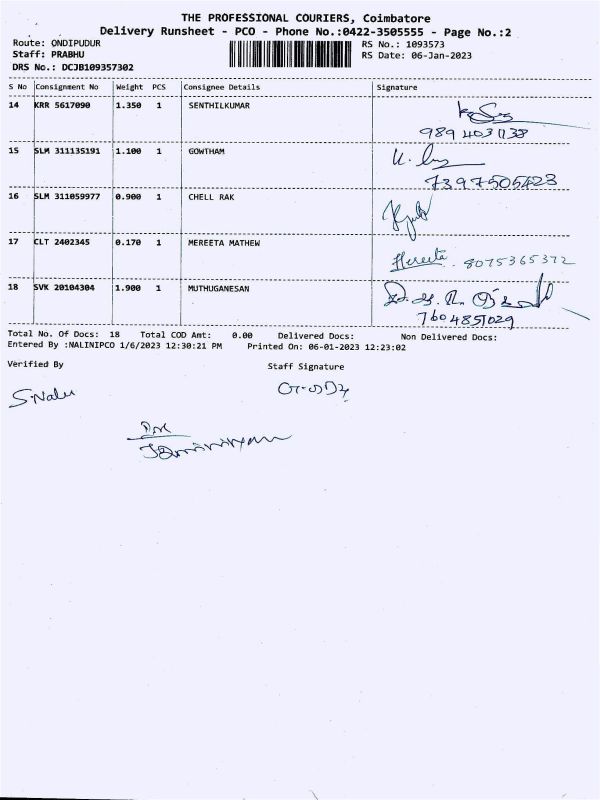 THE PROFESSIONAL COURIERS, Coimbatore
Delivery Runsheet - PCO - Phone No.:0422-3505555 - Page No.:2
Route: ONDIPUDUR RS No.: 1093573
Staff: PRABHU RS Date: 06-Jan-2023
DRS No.: DCJB109357302
S No Consignment No Weight PCS Consignee Details Signature
14 KRR 5617090 1.350 1 SENTHILKUMAR
9894031133
15 SLM 311135191 1.100 1 GOWTHAM
7397505423
16 SLM 311059977 0.900 1 CHELL RAK
17 CLT 2402345 0.170 1 MEREETA MATHEW
Mereeta 8075365372
18 SVK 20104304 1.900 1 MUTHUGANESAN
7604851029
Total No. Of Docs: 18 Total COD Amt: 0.00 Delivered Docs: Non Delivered Docs:
Entered By :NALINIPCO 1/6/2023 12:30:21 PM Printed On: 06-01-2023 12:23:02
Verified By Staff Signature
S.Nalu